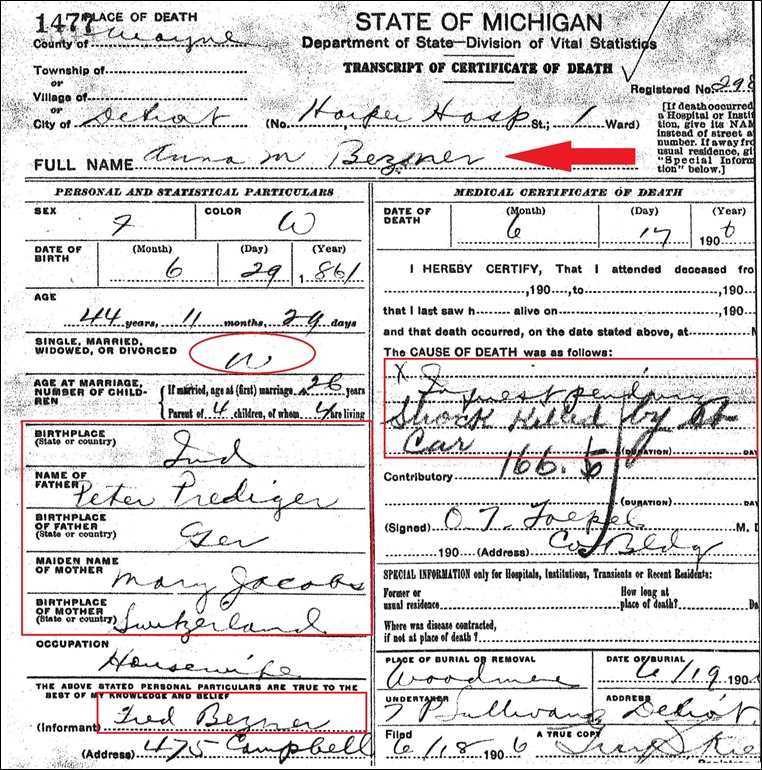 1477 PLACE OF DEATH
County of Wayne
Township of
or
Village of
or
City of Detroit
STATE OF MICHIGAN
Department of State—Division of Vital Statistics
TRANSCRIPT OF CERTIFICATE OF DEATH
Registered No. 298
(No. Harper Hosp St.; 1 Ward)
[If death occurred
a Hospital or Instit
tion, give its NAM
instead of street a
number. If away fro
usual residence, gi
"Special Inform
tion" below.]
FULL NAME Anna M Bezner
PERSONAL AND STATISTICAL PARTICULARS
SEX F COLOR W
DATE OF BIRTH (Month) 6 (Day) 29 (Year) 1861
AGE
44 years, 11 months, 29 days
SINGLE, MARRIED,
WIDOWED, OR DIVORCED W
AGE AT MARRIAGE,
NUMBER OF CHILD-
REN
If married, age at (first) marriage 26 years
Parent of 4 children, of whom 4 are living
BIRTHPLACE
(State or country) Ind
NAME OF
FATHER Peter Prediger
BIRTHPLACE
OF FATHER
(State or country) Ger
MAIDEN NAME
OF MOTHER Mary Jacobs
BIRTHPLACE
OF MOTHER
(State or country) Switzerland
OCCUPATION
Housewife
THE ABOVE STATED PERSONAL PARTICULARS ARE TRUE TO THE
BEST OF MY KNOWLEDGE AND BELIEF
(Informant) Fred Bezner
(Address) 475 Campbell
MEDICAL CERTIFICATE OF DEATH
DATE OF DEATH (Month) 6 (Day) 17 (Year) 1906
I HEREBY CERTIFY, That I attended deceased fro
,190 ,to ,190
that I last saw h alive on ,190
and that death occurred, on the date stated above, at M
The CAUSE OF DEATH was as follows:
X Inquest pending
Shock Killed by St
Car
(DURATION) DA
Contributory 166.
(DURATION) DAY
(Signed) O. T. Toepel M. D
190 (Address) Co Bldg
SPECIAL INFORMATION only for Hospitals, Institutions, Transients or Recent Residents:
Former or
usual residence
How long at
place of death? Da
Where was disease contracted,
if not at place of death?
PLACE OF BURIAL OR REMOVAL
Woodmere
DATE OF BURIAL
6/19 190
UNDERTAKER
T P Sullivan
ADDRESS
Detroit
Filed
6/18 1906
A TRUE COPY